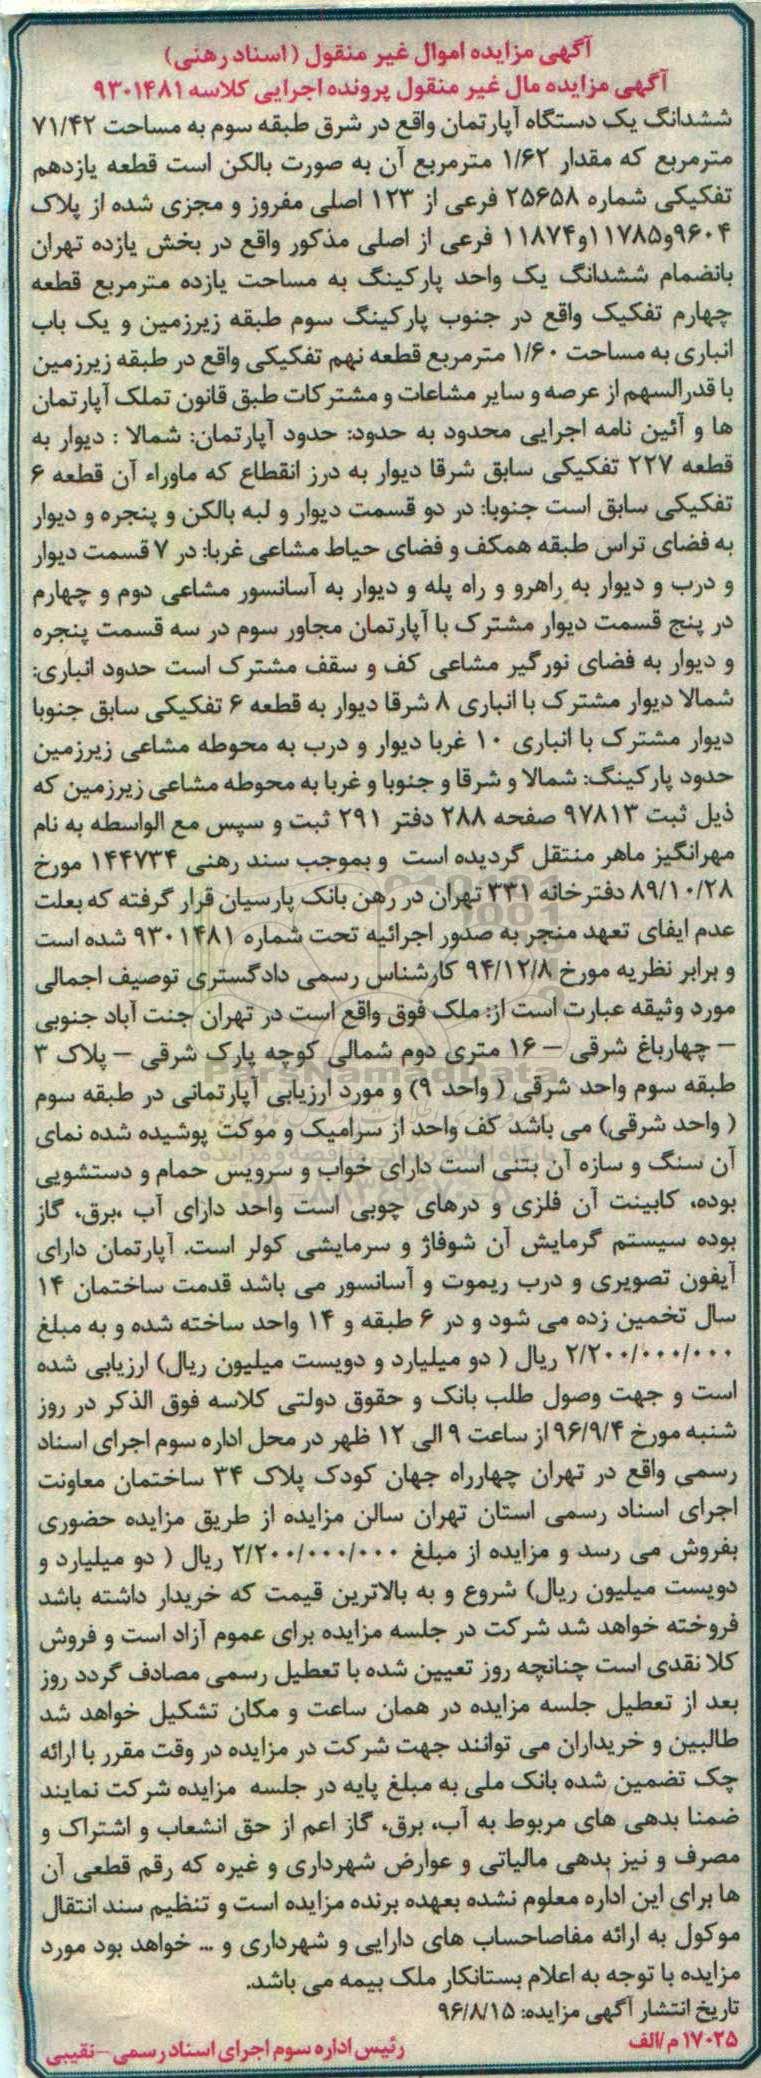 آگهی مزایده اموال غیر منقول (اسناد رهنی)
آگهی مزایده مال غیر منقول پرونده اجرایی کلاسه ۹۳۰۱۴۸۱
ششدانگ یک دستگاه آپارتمان واقع در شرق طبقه سوم به مساحت ۷۱/۴۲
مترمربع که مقدار ۱/۶۲ مترمربع آن به صورت بالکن است قطعه یازدهم
تفکیکی شماره ۲۵۶۵۸ فرعی از ۱۲۳ اصلی مفروز و مجزی شده از پلاک
۹۶۰۴و۱۱۷۸۵و۱۱۸۷۴ فرعی از اصلی مذکور واقع در بخش یازده تهران
بانضمام ششدانگ یک واحد پارکینگ به مساحت یازده مترمربع قطعه
چهارم تفکیک واقع در جنوب پارکینگ سوم طبقه زیرزمین و یک باب
انباری به مساحت ۱/۶۰ مترمربع قطعه نهم تفکیکی واقع در طبقه زیرزمین
با قدرالسهم از عرصه و سایر مشاعات و مشترکات طبق قانون تملک آپارتمان
ها و آئین نامه اجرایی محدود به حدود: حدود آپارتمان: شمالا : دیوار به
قطعه ۲۲۷ تفکیکی سابق شرقا دیوار به درز انقطاع که ماوراء آن قطعه ۶
تفکیکی سابق است جنوبا: در دو قسمت دیوار و لبه بالکن و پنجره و دیوار
به فضای تراس طبقه همکف و فضای حیاط مشاعی غربا: در ۷ قسمت دیوار
و درب و دیوار به راهرو و راه پله و دیوار به آسانسور مشاعی دوم و چهارم
در پنج قسمت دیوار مشترک با آپارتمان مجاور سوم در سه قسمت پنجره
و دیوار به فضای نورگیر مشاعی کف و سقف مشترک است حدود انباری:
شمالا دیوار مشترک با انباری ۸ شرقا دیوار به قطعه ۶ تفکیکی سابق جنوبا
دیوار مشترک با انباری ۱۰ غربا دیوار و درب به محوطه مشاعی زیرزمین
حدود پارکینگ: شمالا و شرقا و جنوبا و غربا به محوطه مشاعی زیرزمین که
ذیل ثبت ۹۷۸۱۳ صفحه ۲۸۸ دفتر ۲۹۱ ثبت و سپس مع الواسطه به نام
مهرانگیز ماهر منتقل گردیده است و بموجب سند رهنی ۱۴۴۷۳۴ مورخ
۸۹/۱۰/۲۸ دفترخانه ۳۳۱ تهران در رهن بانک پارسیان قرار گرفته که بعلت
عدم ایفای تعهد منجر به صدور اجرائیه تحت شماره ۹۳۰۱۴۸۱ شده است
و برابر نظریه مورخ ۹۴/۱۲/۸ کارشناس رسمی دادگستری توصیف اجمالی
مورد وثیقه عبارت است از: ملک فوق واقع است در تهران جنت آباد جنوبی
– چهارباغ شرقی – ۱۶ متری دوم شمالی کوچه پارک شرقی – پلاک ۳
طبقه سوم واحد شرقی ( واحد ۹) و مورد ارزیابی آپارتمانی در طبقه سوم
( واحد شرقی) می باشد کف واحد از سرامیک و موکت پوشیده شده نمای
آن سنگ و سازه آن بتنی است دارای خواب و سرویس حمام و دستشویی
بوده، کابینت آن فلزی و درهای چوبی است واحد دارای آب ،برق، گاز
بوده سیستم گرمایش آن شوفاژ و سرمایشی کولر است. آپارتمان دارای
آیفون تصویری و درب ریموت و آسانسور می باشد قدمت ساختمان ۱۴
سال تخمین زده می شود و در ۶ طبقه و ۱۴ واحد ساخته شده و به مبلغ
۲/۲۰۰/۰۰۰/۰۰۰ ریال ( دو میلیارد و دویست میلیون ریال) ارزیابی شده
است و جهت وصول طلب بانک و حقوق دولتی کلاسه فوق الذکر در روز
شنبه مورخ ۹۶/۹/۴ از ساعت ۹ الی ۱۲ ظهر در محل اداره سوم اجرای اسناد
رسمی واقع در تهران چهارراه جهان کودک پلاک ۳۴ ساختمان معاونت
اجرای اسناد رسمی استان تهران سالن مزایده از طریق مزایده حضوری
بفروش می رسد و مزایده از مبلغ ۲/۲۰۰/۰۰۰/۰۰۰ ریال ( دو میلیارد و
دویست میلیون ریال) شروع و به بالاترین قیمت که خریدار داشته باشد
فروخته خواهد شد شرکت در جلسه مزایده برای عموم آزاد است و فروش
کلا نقدی است چنانچه روز تعیین شده با تعطیل رسمی مصادف گردد روز
بعد از تعطیل جلسه مزایده در همان ساعت و مکان تشکیل خواهد شد
طالبین و خریداران می توانند جهت شرکت در مزایده در وقت مقرر با ارائه
چک تضمین شده بانک ملی به مبلغ پایه در جلسه مزایده شرکت نمایند
ضمنا بدهی های مربوط به آب، برق، گاز اعم از حق انشعاب و اشتراک و
مصرف و نیز بدهی مالیاتی و عوارض شهرداری و غیره که رقم قطعی آن
ها برای این اداره معلوم نشده بعهده برنده مزایده است و تنظیم سند انتقال
موکول به ارائه مفاصاحساب های دارایی و شهرداری و ... خواهد بود مورد
مزایده با توجه به اعلام بستانکار ملک بیمه می باشد.
تاریخ انتشار آگهی مزایده: ۹۶/۸/۱۵
۱۷۰۲۵م/الف
رئیس اداره سوم اجرای اسناد رسمی -نقیبی
ParsNamadData